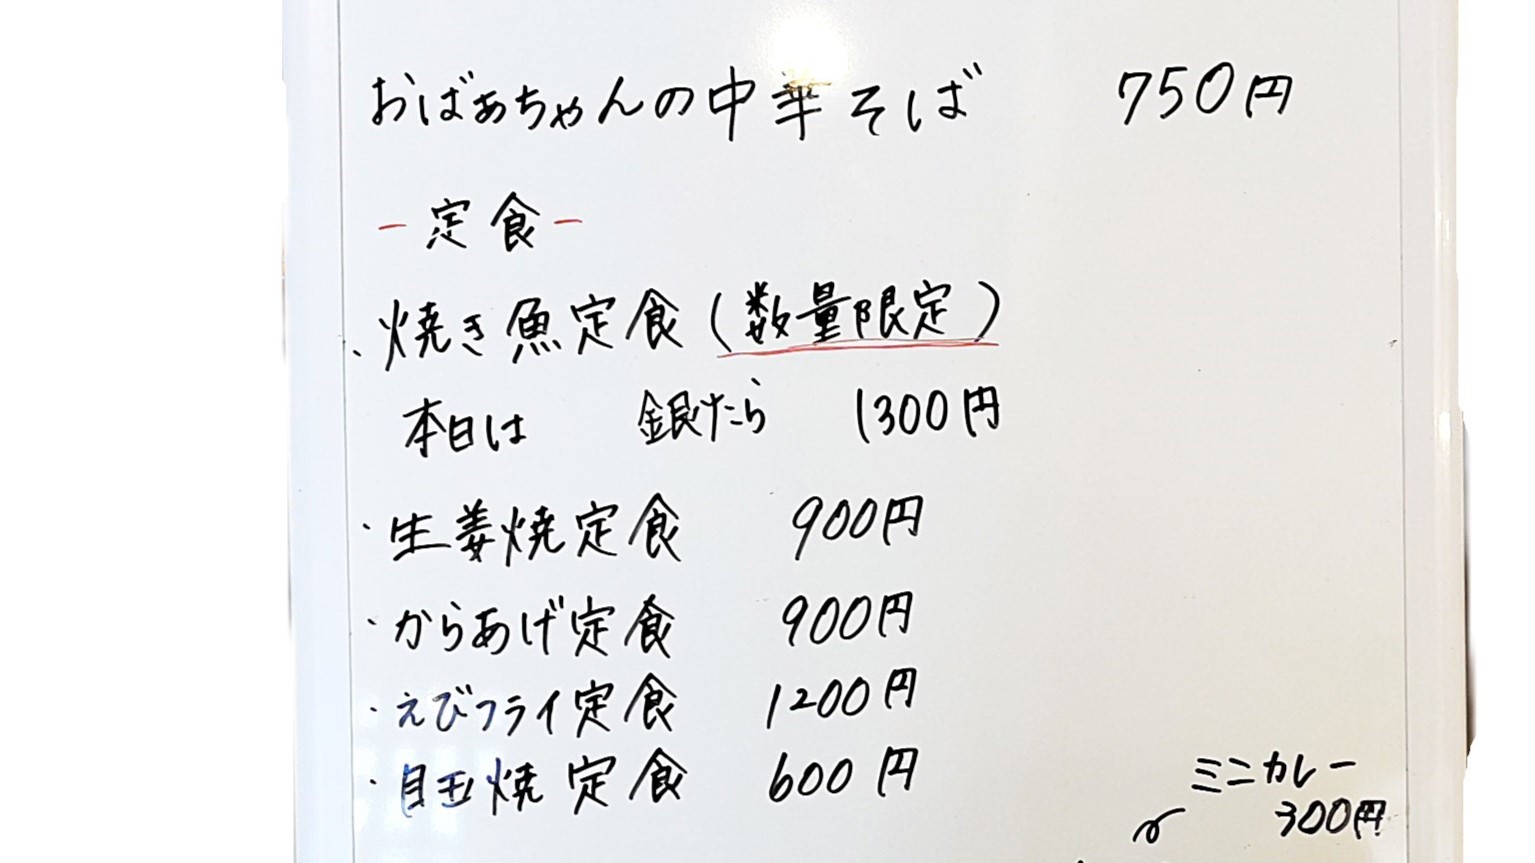 おばぁちゃんの中華そば 750円
-定食-
・焼き魚定食(数量限定)
本日は 銀だら 1300円
・生姜焼定食 900円
・からあげ定食 900円
・えびフライ定食 1200円
・目玉焼定食 600円
ミニカレー
300円